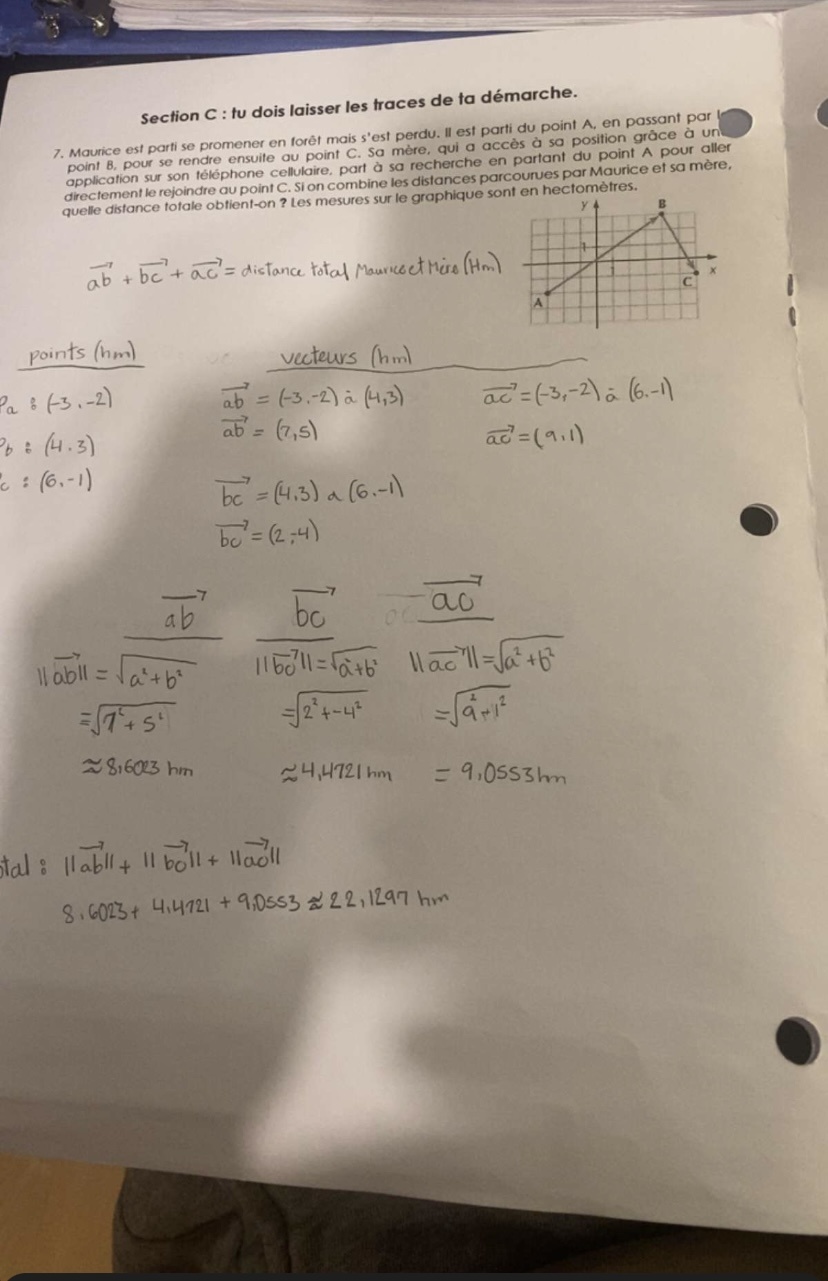 Section C : tu dois laisser les traces de ta démarche.
7. Maurice est parti se promener en forêt mais s'est perdu. Il est parti du point A, en passant par l
point B, pour se rendre ensuite au point C. Sa mère, qui a accès à sa position grâce à un
application sur son téléphone cellulaire, part à sa recherche en partant du point A pour aller
directement le rejoindre au point C. Si on combine les distances parcourues par Maurice et sa mère,
quelle distance totale obtient-on ? Les mesures sur le graphique sont en hectomètres.
y B
1
1 x
A C
ab + bc + ac = distance total Maurice et Mère (Hm)
points (hm) vecteurs (hm)
Pa : (-3,-2) ab = (-3,-2) à (4,3) ac = (-3,-2) à (6,-1)
ab = (7,5) ac = (9,1)
Pb : (4,3)
c : (6,-1) bc = (4,3) a (6,-1)
bc = (2,-4)
ab bc ac
||ab|| = √a²+b² ||bc|| = √a²+b² ||ac|| = √a²+b²
= √7²+5² = √2²+-4² = √9²+1²
≈ 8,6023 hm ≈ 4,4721 hm = 9,0553 hm
otal : ||ab|| + ||bc|| + ||ac||
8,6023 + 4,4721 + 9,0553 ≈ 22,1297 hm